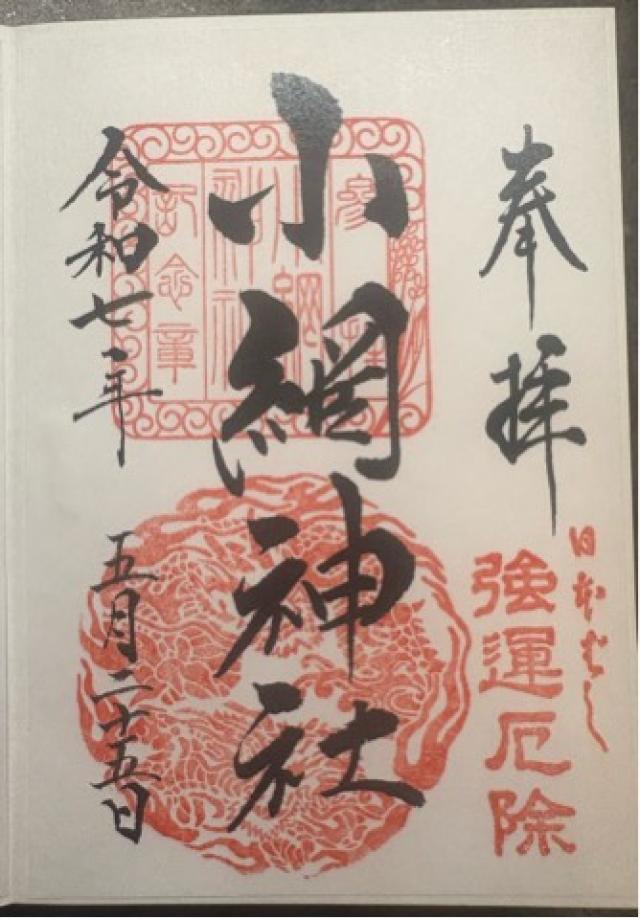 奉拝
日本ばし
強運厄除
小網神社
参拝
小網
神社
記念章
令和七年
五月二十五日